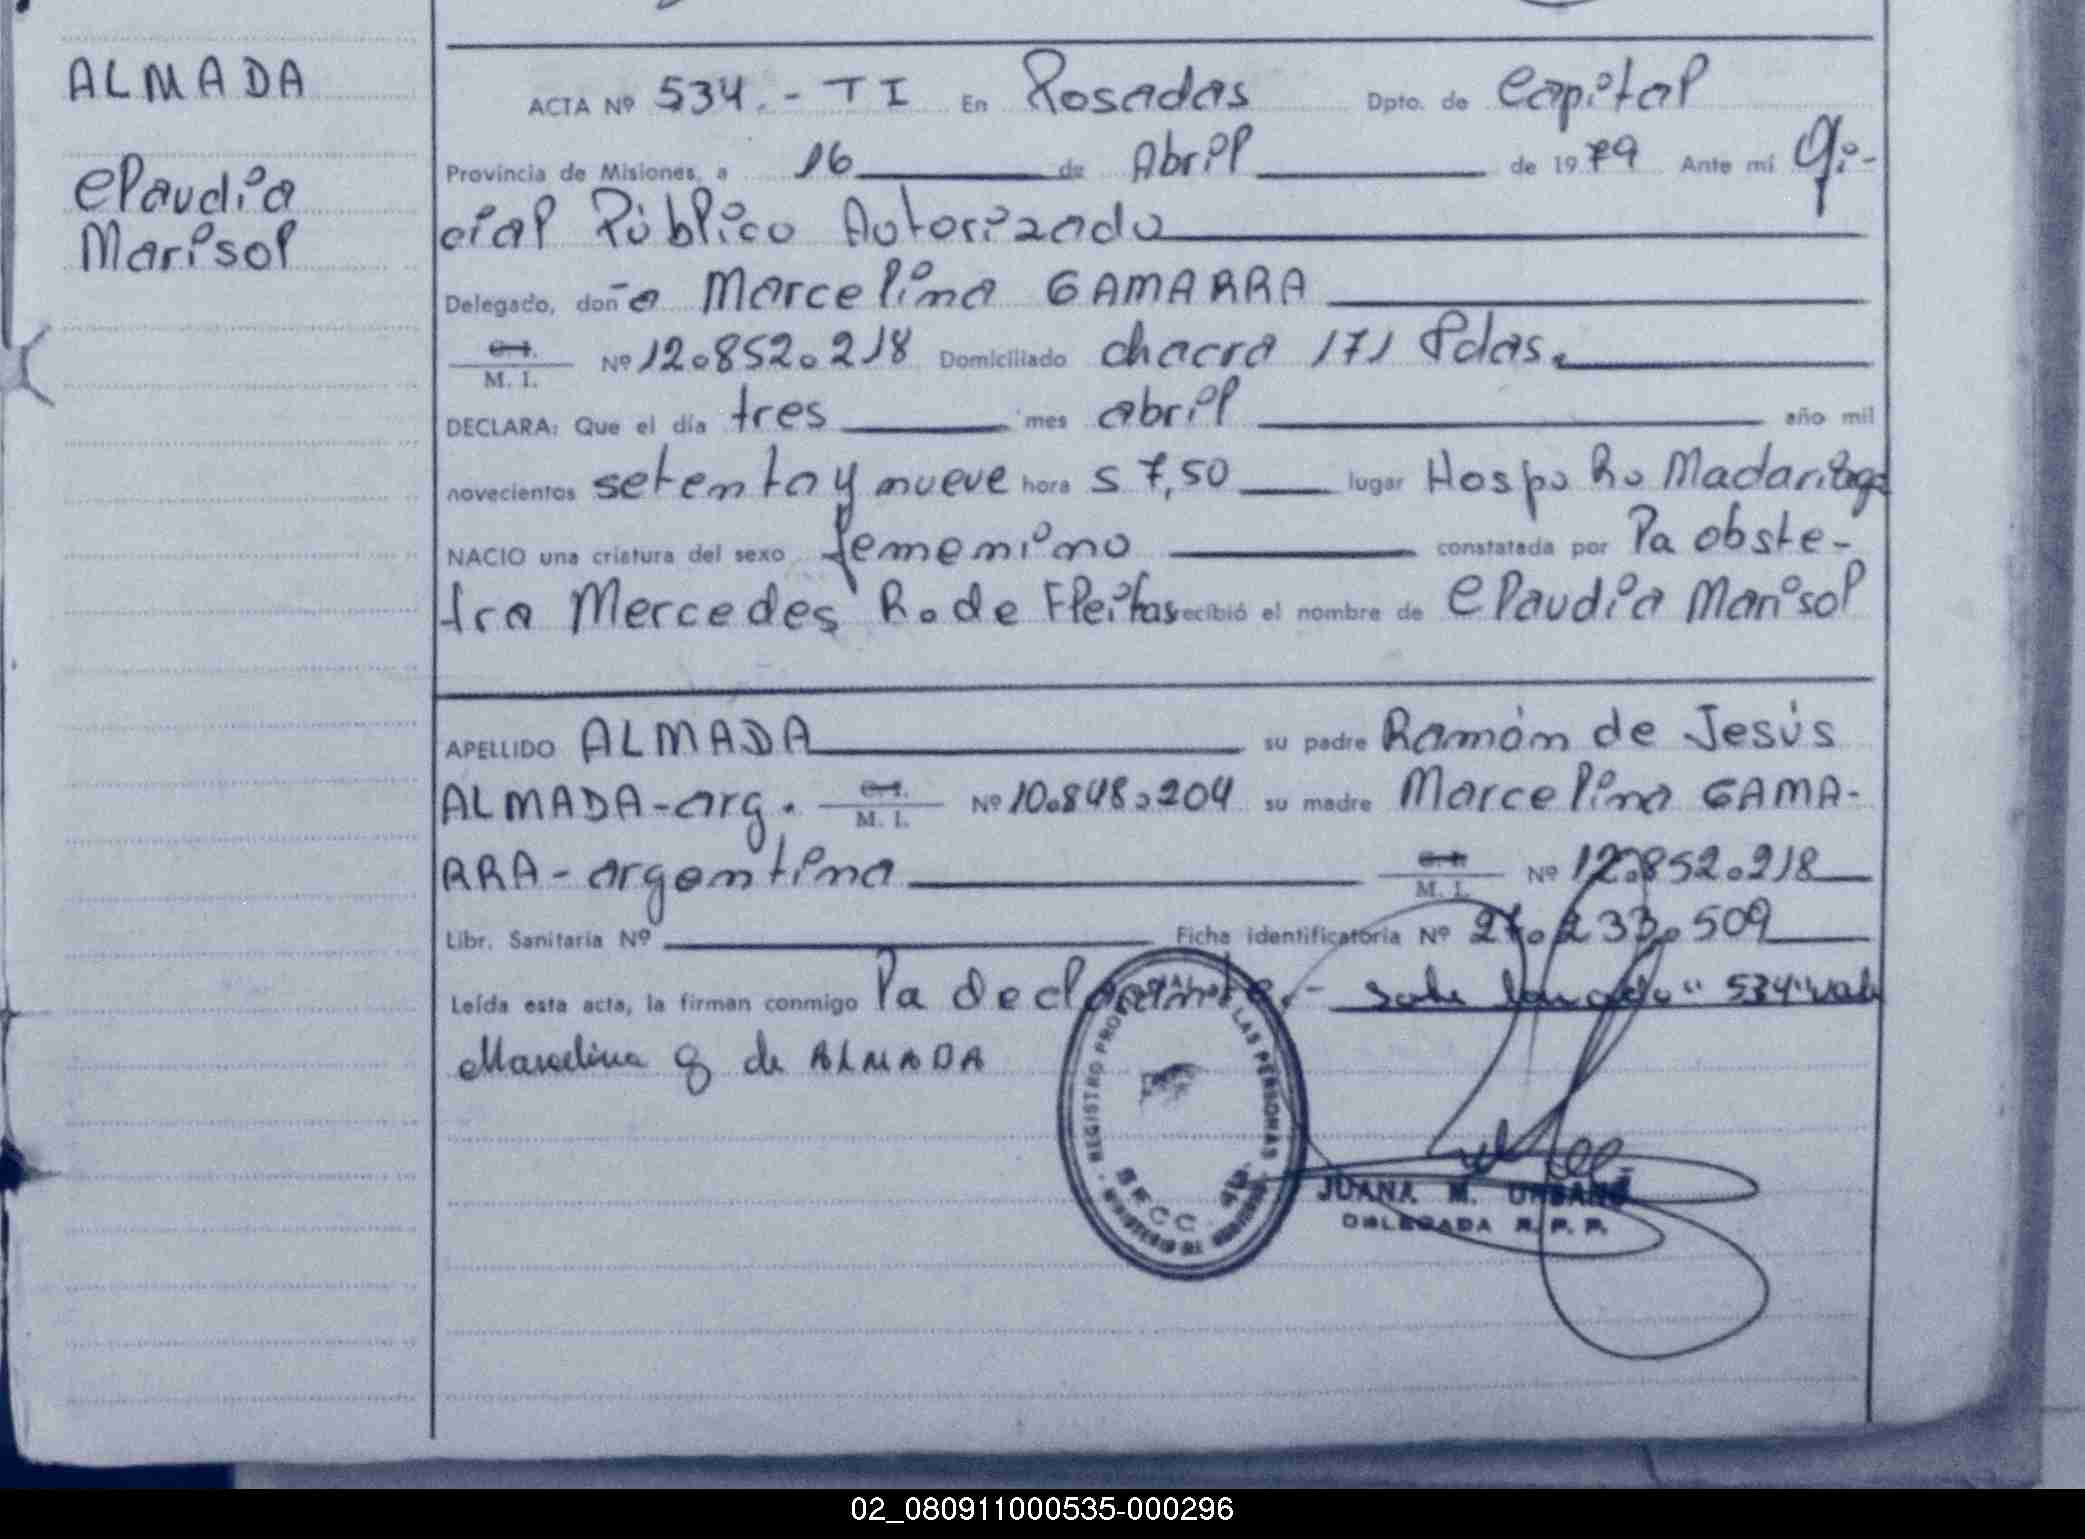 ALMADA
Claudia
Marisol
ACTA Nº 534.- T I En Posadas Dpto. de Capital
Provincia de Misiones, a 16 de Abril de 1979 Ante mí Ofi-
cial Público Autorizado
Delegado, doña Marcelina GAMARRA
C. I. M. I. Nº 12.852.218 Domiciliado chacra 171 Pdas.
DECLARA: Que el día tres mes abril año mil
novecientos setenta y nueve hora s 7,50 lugar Hosp. R. Madariaga
NACIO una criatura del sexo femenino constatada por la obste-
tra Mercedes R. de Fleitas recibió el nombre de Claudia Marisol
APELLIDO ALMADA su padre Ramón de Jesús
ALMADA-arg. C. I. M. I. Nº 10.848.204 su madre Marcelina GAMA-
RRA-argentina C. I. M. I. Nº 12.852.218
Libr. Sanitaria Nº Ficha identificatoria Nº 27.233.509
Leída esta acta, la firman conmigo la declarante.- "534" vale
Marcelina G de ALMADA
REGISTRO PROVINCIAL DE LAS PERSONAS
SECC.
JUANA M. URBANO
DELEGADA R. P. P.
02_080911000535-000296